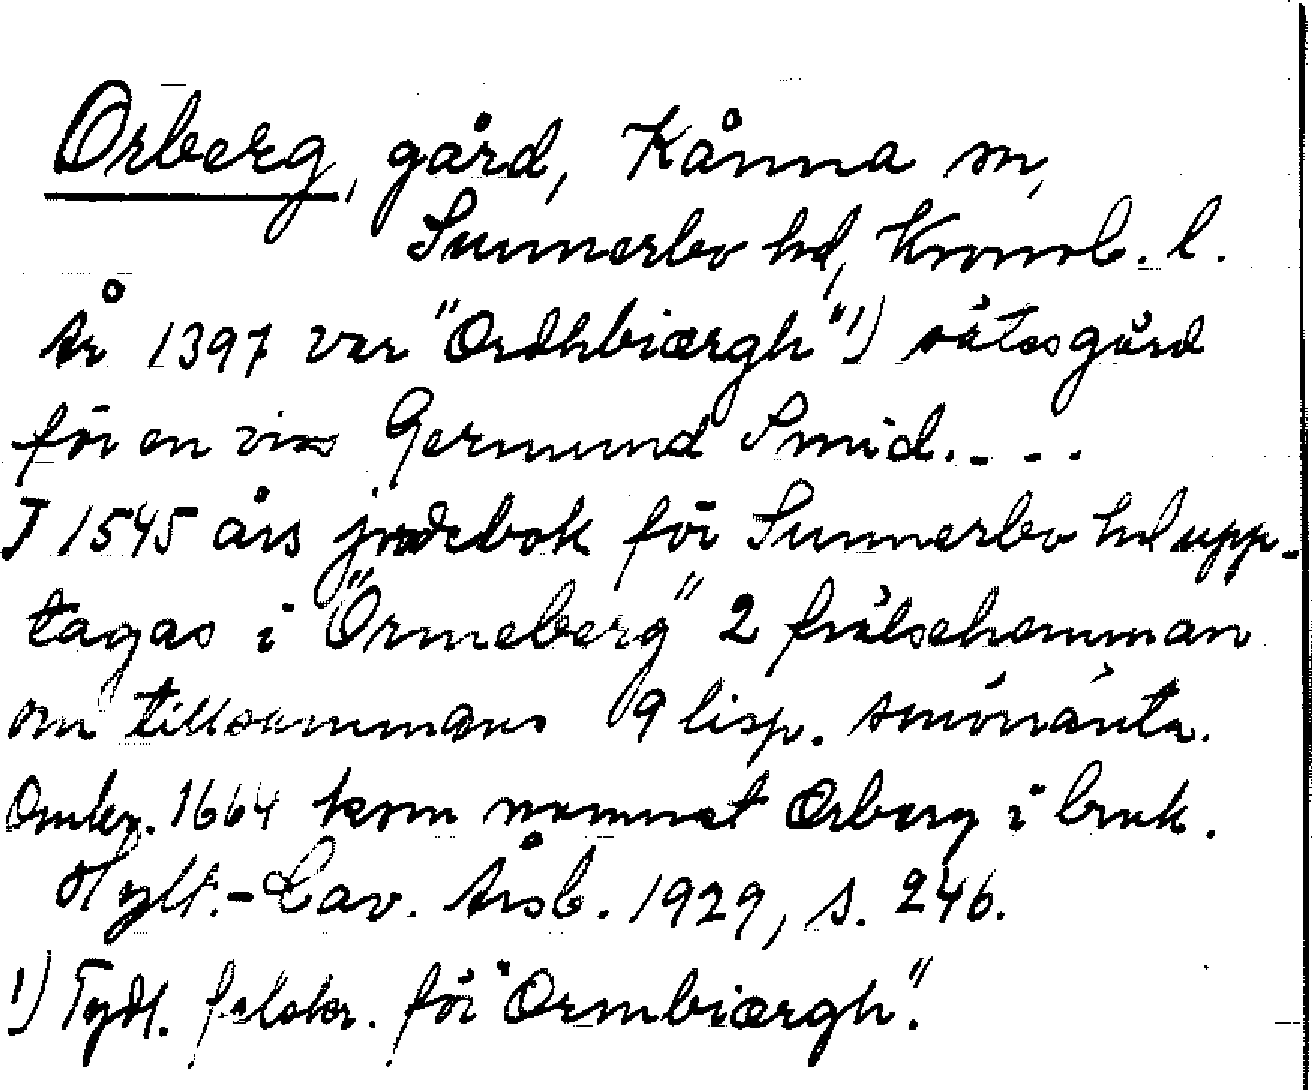 Orberg, gård, Kånna sn,
Sunnerbo hd, Kronob. l.
År 1397 var "Ordhbiærgh"1) sätesgård
för en viss Germund Smid. - - .
I 1545 års jordebok för Sunnerbo hd upp-
tagas i "Ormeberg" 2 frälsehemman
om tillsammans 9 lisp. smörränta.
Omkr. 1664 kom namnet Orberg i bruk.
Hylt.-Cav. Årsb. 1929, s. 246.
1) Tydl. felskr. för "Ormbiærgh".